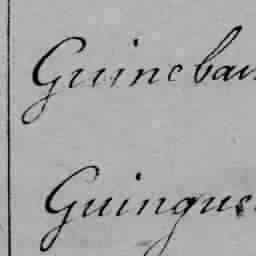 Guinebau
Guingues